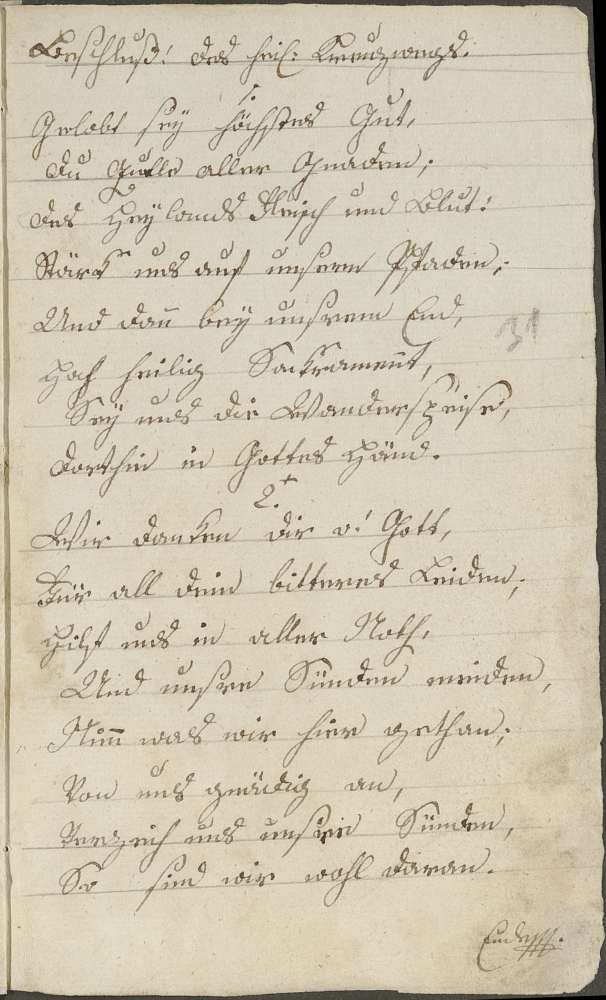 Beschluß! des heil: Kreuzwegs.
1.
Gelobt sey höchstes Gut,
Du Qulle aller Gnaden;
Des Heylands Fleisch und Blut:
Stärk uns auf unsern Pfaden;
Und dañ bey unsrem End,
Hoch heilig Sackrament,
Sey uns die Wanderspeise,
dorthin in Gottes Händ.
2.
Wir danken dir o! Gott,
Für all dein bitteres Leiden;
Hilf uns in aller Noth,
Und unsre Sünden meiden,
Nim̄ was wir hier gethan;
Von uns gnädig an,
Verzeih uns unsere Sünden,
So sind wir wohl daran.
Ende
31